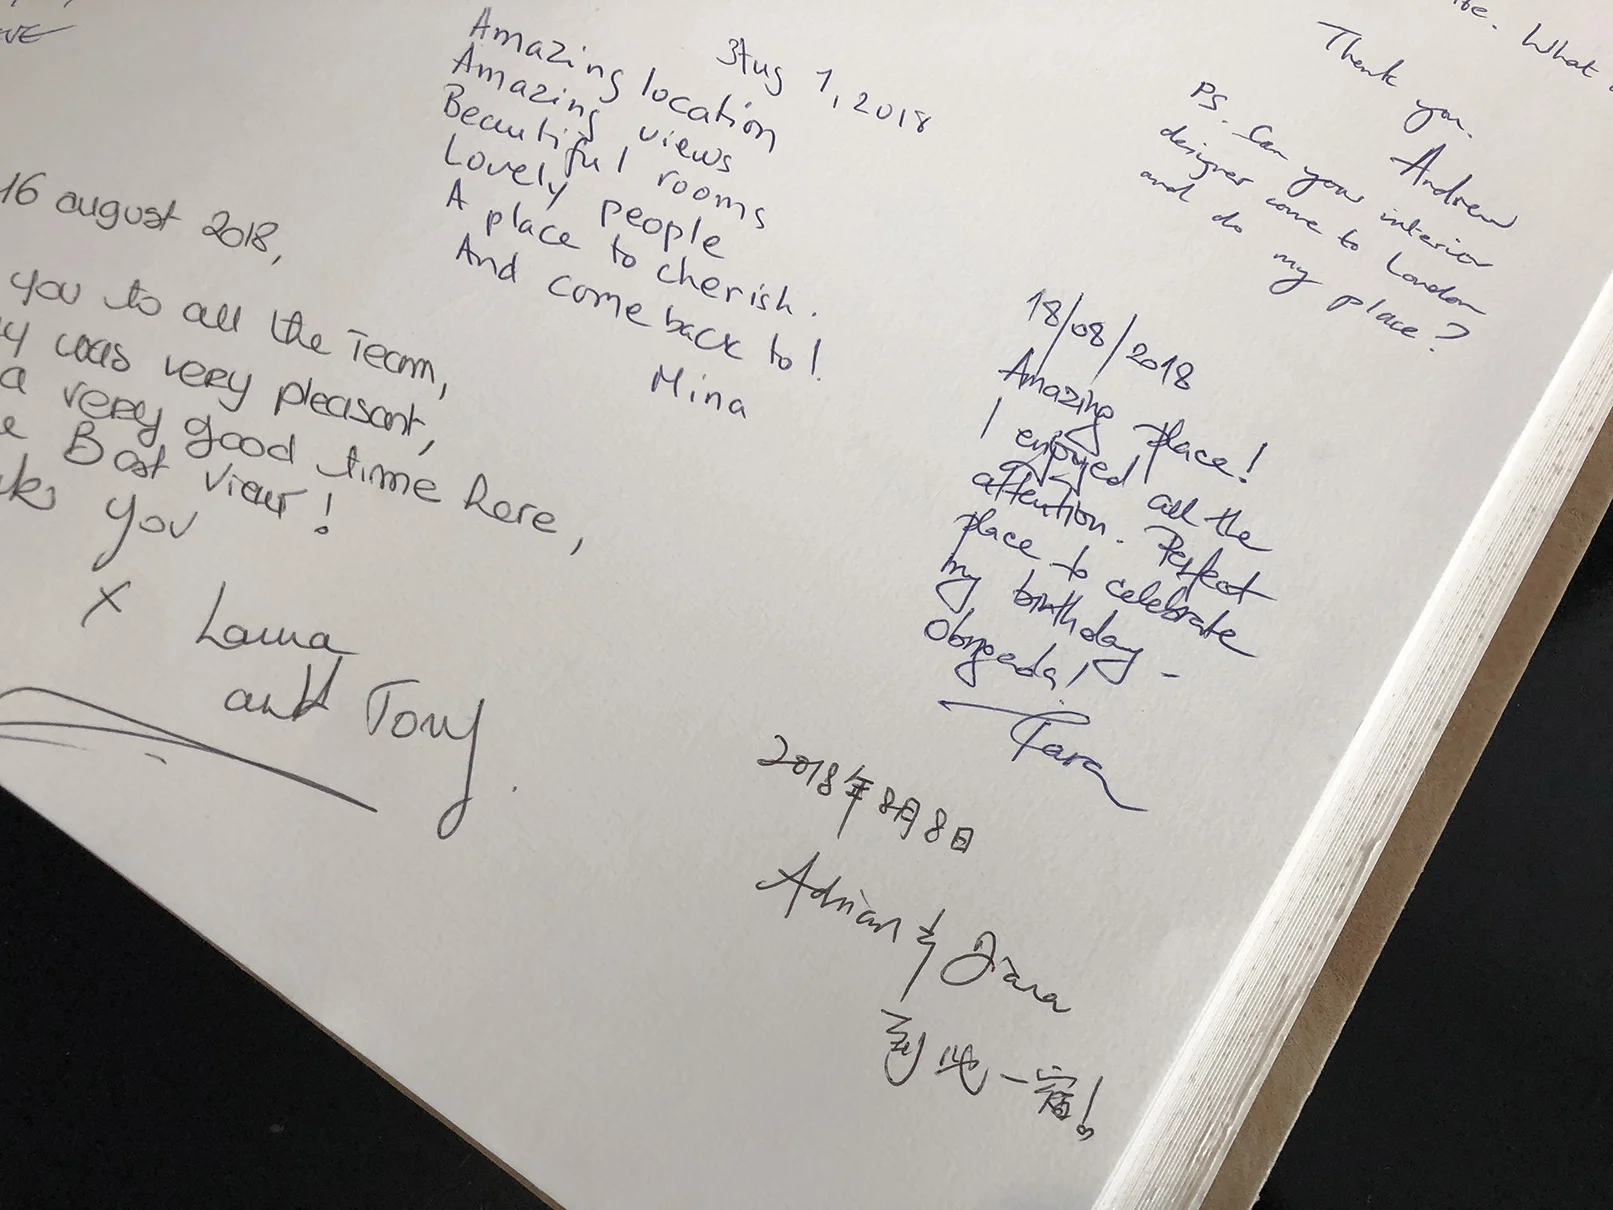 16 august 2018,
you to all the Team,
was very pleasant,
a very good time here,
Best view!
you
x Laura
and Tony.
Aug 1, 2018
Amazing location
Amazing views
Beautiful rooms
Lovely people
A place to cherish.
And come back to!
Mina
What
Thank you.
Andrew
PS. Can your interior
designer come to London
and do my place?
18/08/2018
Amazing place!
I enjoyed all the
attention. Perfect
place to celebrate
my birthday -
Obrigada!
Tara
2018年8月8日
Adrian & Diana
到此一宿!